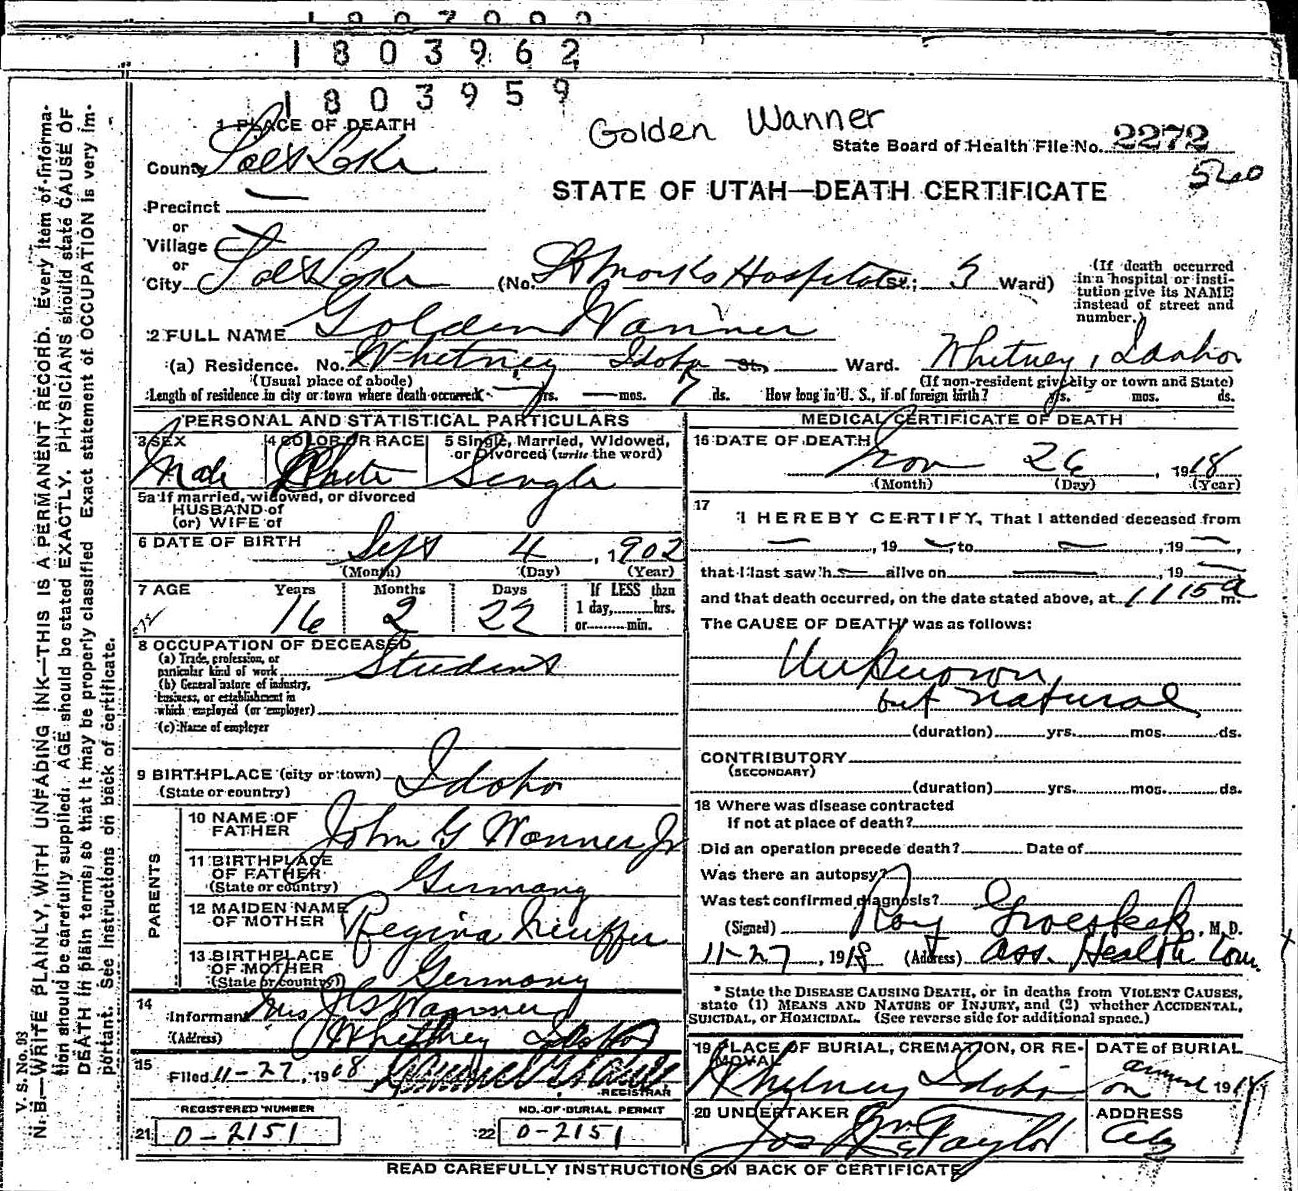 1803962
1803959
Golden Wanner
1 PLACE OF DEATH
State Board of Health File No. 2272
County Salt Lake
STATE OF UTAH—DEATH CERTIFICATE
Precinct
or
Village
or
City Salt Lake (No. St Marks Hospital St.; 5 Ward)
(If death occurred in a hospital or institution give its NAME instead of street and number.)
2 FULL NAME Golden Wanner
(a) Residence. No. Whitney Idaho St. Ward. Whitney, Idaho
(Usual place of abode) (If non-resident give city or town and State)
Length of residence in city or town where death occurred — yrs. — mos. 7 ds. How long in U. S., if of foreign birth? yrs. mos. ds.
PERSONAL AND STATISTICAL PARTICULARS
3 SEX 4 COLOR OR RACE 5 Single, Married, Widowed, or Divorced (write the word)
Male White Single
5a If married, widowed, or divorced
HUSBAND of
(or) WIFE of
6 DATE OF BIRTH Sept 4, 1902
(Month) (Day) (Year)
7 AGE Years Months Days If LESS than
16 2 22 1 day, hrs.
or min.
8 OCCUPATION OF DECEASED
(a) Trade, profession, or
particular kind of work Student
(b) General nature of industry,
business, or establishment in
which employed (or employer)
(c) Name of employer
9 BIRTHPLACE (city or town) Idaho
(State or country)
PARENTS
10 NAME OF FATHER John G Wanner Jr
11 BIRTHPLACE OF FATHER (State or country) Germany
12 MAIDEN NAME OF MOTHER Regina Neuffer
13 BIRTHPLACE OF MOTHER (State or country) Germany
14
Informant Mrs J G Wanner
(Address) Whitney Idaho
15
Filed 11-27, 1918
REGISTRAR
REGISTERED NUMBER NO. OF BURIAL PERMIT
21 0-2151 22 0-2151
MEDICAL CERTIFICATE OF DEATH
16 DATE OF DEATH
Nov 26, 1918
(Month) (Day) (Year)
17
I HEREBY CERTIFY, That I attended deceased from
—, 19 — to —, 19 —,
that I last saw h— alive on —, 19 —
and that death occurred, on the date stated above, at 1115 a m.
The CAUSE OF DEATH was as follows:
Unknown
but natural
(duration) yrs. mos. ds.
CONTRIBUTORY
(SECONDARY)
(duration) yrs. mos. ds.
18 Where was disease contracted
If not at place of death?
Did an operation precede death? Date of
Was there an autopsy?
Was test confirmed diagnosis?
(Signed) Roy Groesbeck, M. D.
11-27, 1918 (Address) Ass. Health Com.
* State the DISEASE CAUSING DEATH, or in deaths from VIOLENT CAUSES,
state (1) MEANS AND NATURE OF INJURY, and (2) whether ACCIDENTAL,
SUICIDAL, or HOMICIDAL. (See reverse side for additional space.)
19 PLACE OF BURIAL, CREMATION, OR REMOVAL DATE of BURIAL
Whitney Idaho on arrival 191
20 UNDERTAKER ADDRESS
Jos Wm Taylor City
READ CAREFULLY INSTRUCTIONS ON BACK OF CERTIFICATE
V. S. No. 93
N. B.—WRITE PLAINLY, WITH UNFADING INK—THIS IS A PERMANENT RECORD. Every item of information
should be carefully supplied. AGE should be stated EXACTLY. PHYSICIANS should state CAUSE OF
DEATH in plain terms, so that it may be properly classified Exact statement of OCCUPATION is very important.
See Instructions on back of certificate.